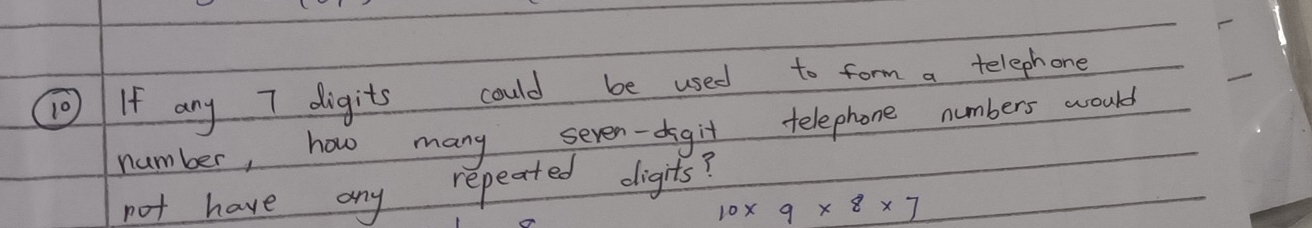 10 If any 7 digits could be used to form a telephone
number, how many seven-digit telephone numbers would
not have any repeated digits?
10 x 9 x 8 x 7